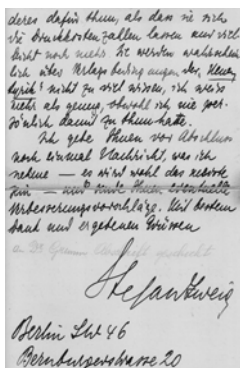 deres dafür thun, als dass sie sich
die Druckkosten zahlen lassen und viel
leicht noch mehr. Sie werden wahrschein
lich über Verlagsbedingungen der „Neuen
Lyrik“ nicht zu viel wissen, ich weiss
mehr als genug, obwohl ich nie per-
sönlich damit zu thun hatte.
Ich gebe Ihnen vor Abschluss
noch einmal Nachricht, was ich
nehme – es wird wohl das meiste
sein – und sende Ihnen eventuelle
Verbesserungsvorschläge. Mit bestem
Dank und ergebenen Grüssen
an Dr. Abschrift geschickt
Stefan Zweig
Berlin SW 46
Bernburgerstrasse 20